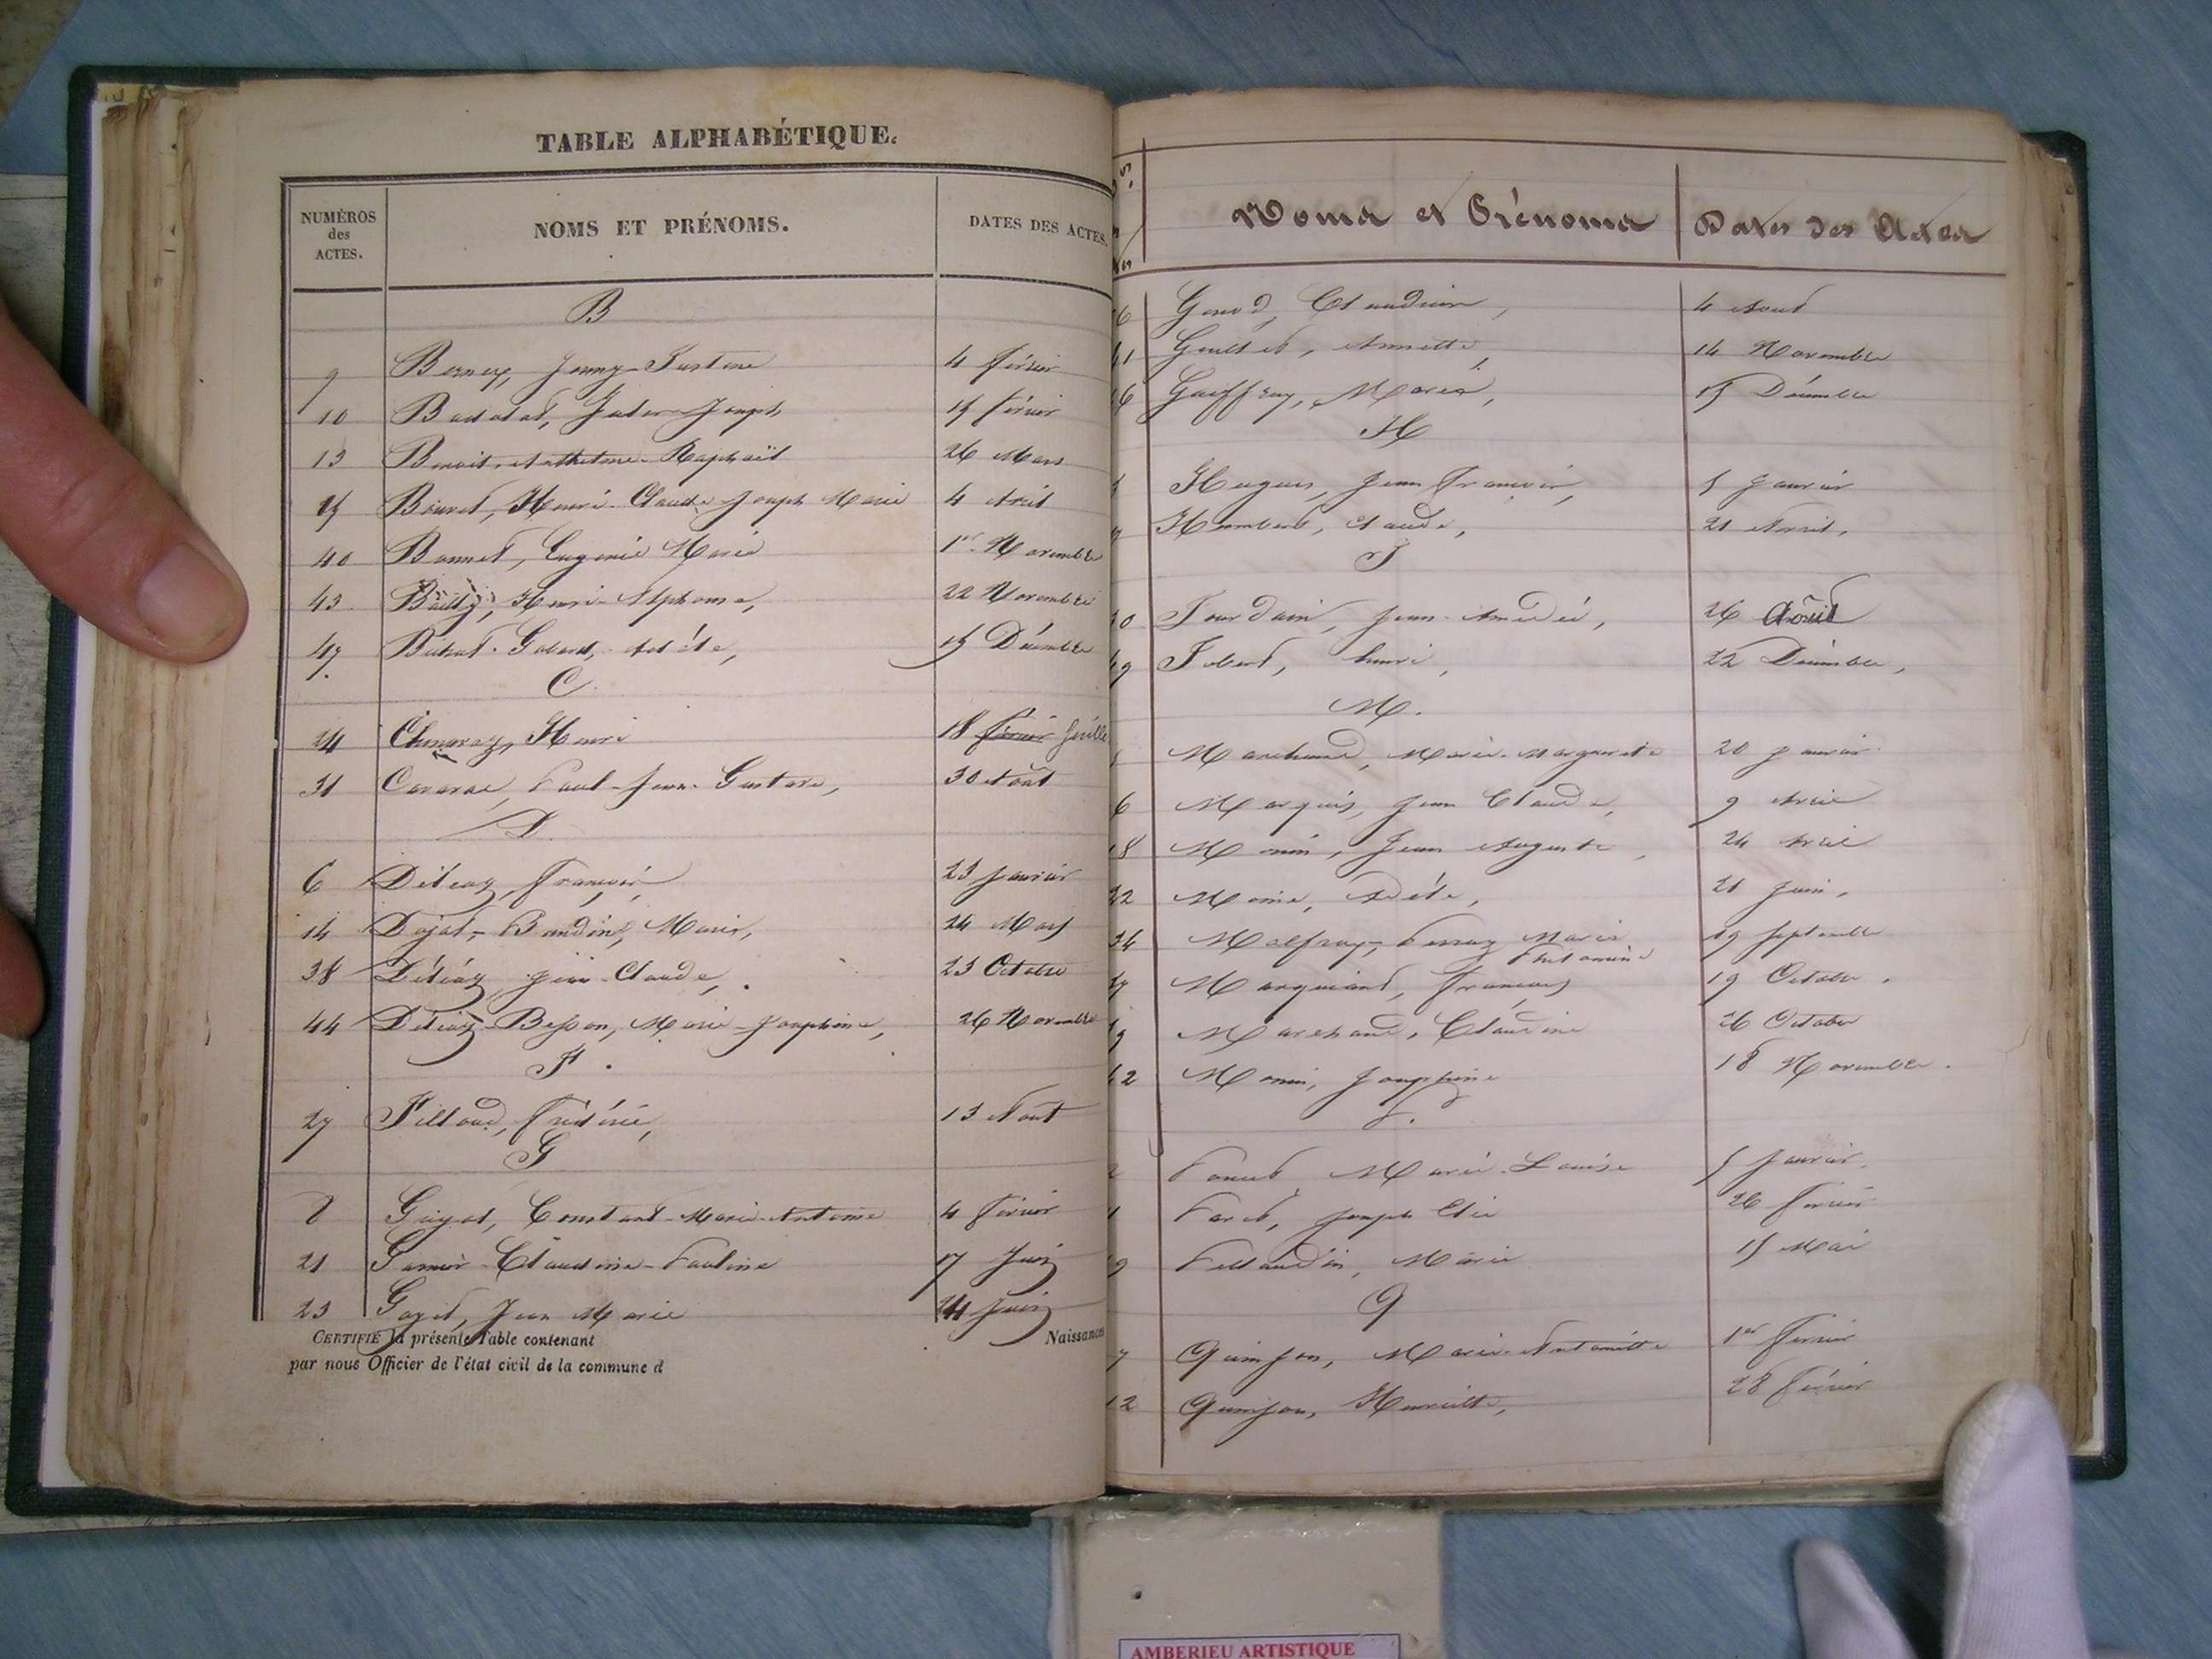 TABLE ALPHABÉTIQUE.
NUMÉROS des ACTES. NOMS ET PRÉNOMS. DATES DES ACTES.
B
9 Bernex, Jenny-Justine 4 février
10 Joseph 15 février
13 Benoit, Raphaël 26 Mars
15 Henri-Claude-Joseph Marie 4 Avril
40 Bonnet, Eugénie Marie 1er Novembre
43 Bailly, Henri-Alphonse, 22 Novembre
47 Adèle, 15 Décembre
C.
24 Henri 18 février Juillet
31 Paul-Jean-Gustave, 30 Août
D.
6 Déléaz, François, 23 janvier
14 Dujat-Baudin, Marie, 24 Mars
38 Déléaz, Jean-Claude, 23 Octobre
44 Déléaz-Besson, Marie-Josephine, 26 Novembre
F.
27 Filloud, Frédéric, 13 Août
G
8 Guyot, Constant-Marie-Antoine 4 février
21 Claudine-Pauline 17 Juin
23 Goyet, Jean Marie 24 Juin
CERTIFIÉ la présente Table contenant Naissances
par nous Officier de l'état civil de la commune d
Noms et Prénoms Dates des Actes
Claudine, 4 Aout
Annette, 14 Novembre
Guiffray, Marie, 15 Décembre
H
Hugues, Jean François, 5 Janvier
Humbert, Claude, 21 Avril.
J
30 Jourdain, Jean-Amédée, 26 Août
49 Jobert, henri, 22 Décembre,
M.
Marchand, Marie-Marguerite 20 janvier
16 Marquis, Jean Claude, 9 Avril
18 Monin, Jean Auguste, 24 Avril
22 Adèle, 21 Juin,
34 Malfray-Perraz Marie Philomène 19 Septembre
37 François 19 Octobre.
39 Marchand, Claudine 26 Octobre
42 Monin, Josephine 18 Novembre.
P.
2 Marie-Louise 5 Janvier,
11 Joseph Elie 26 février
19 Pellaudin, Marie 15 Mai
Q
7 Quinson, Marie-Antoinette 1er février
12 Quinson, Henriette, 28 février
AMBERIEU ARTISTIQUE